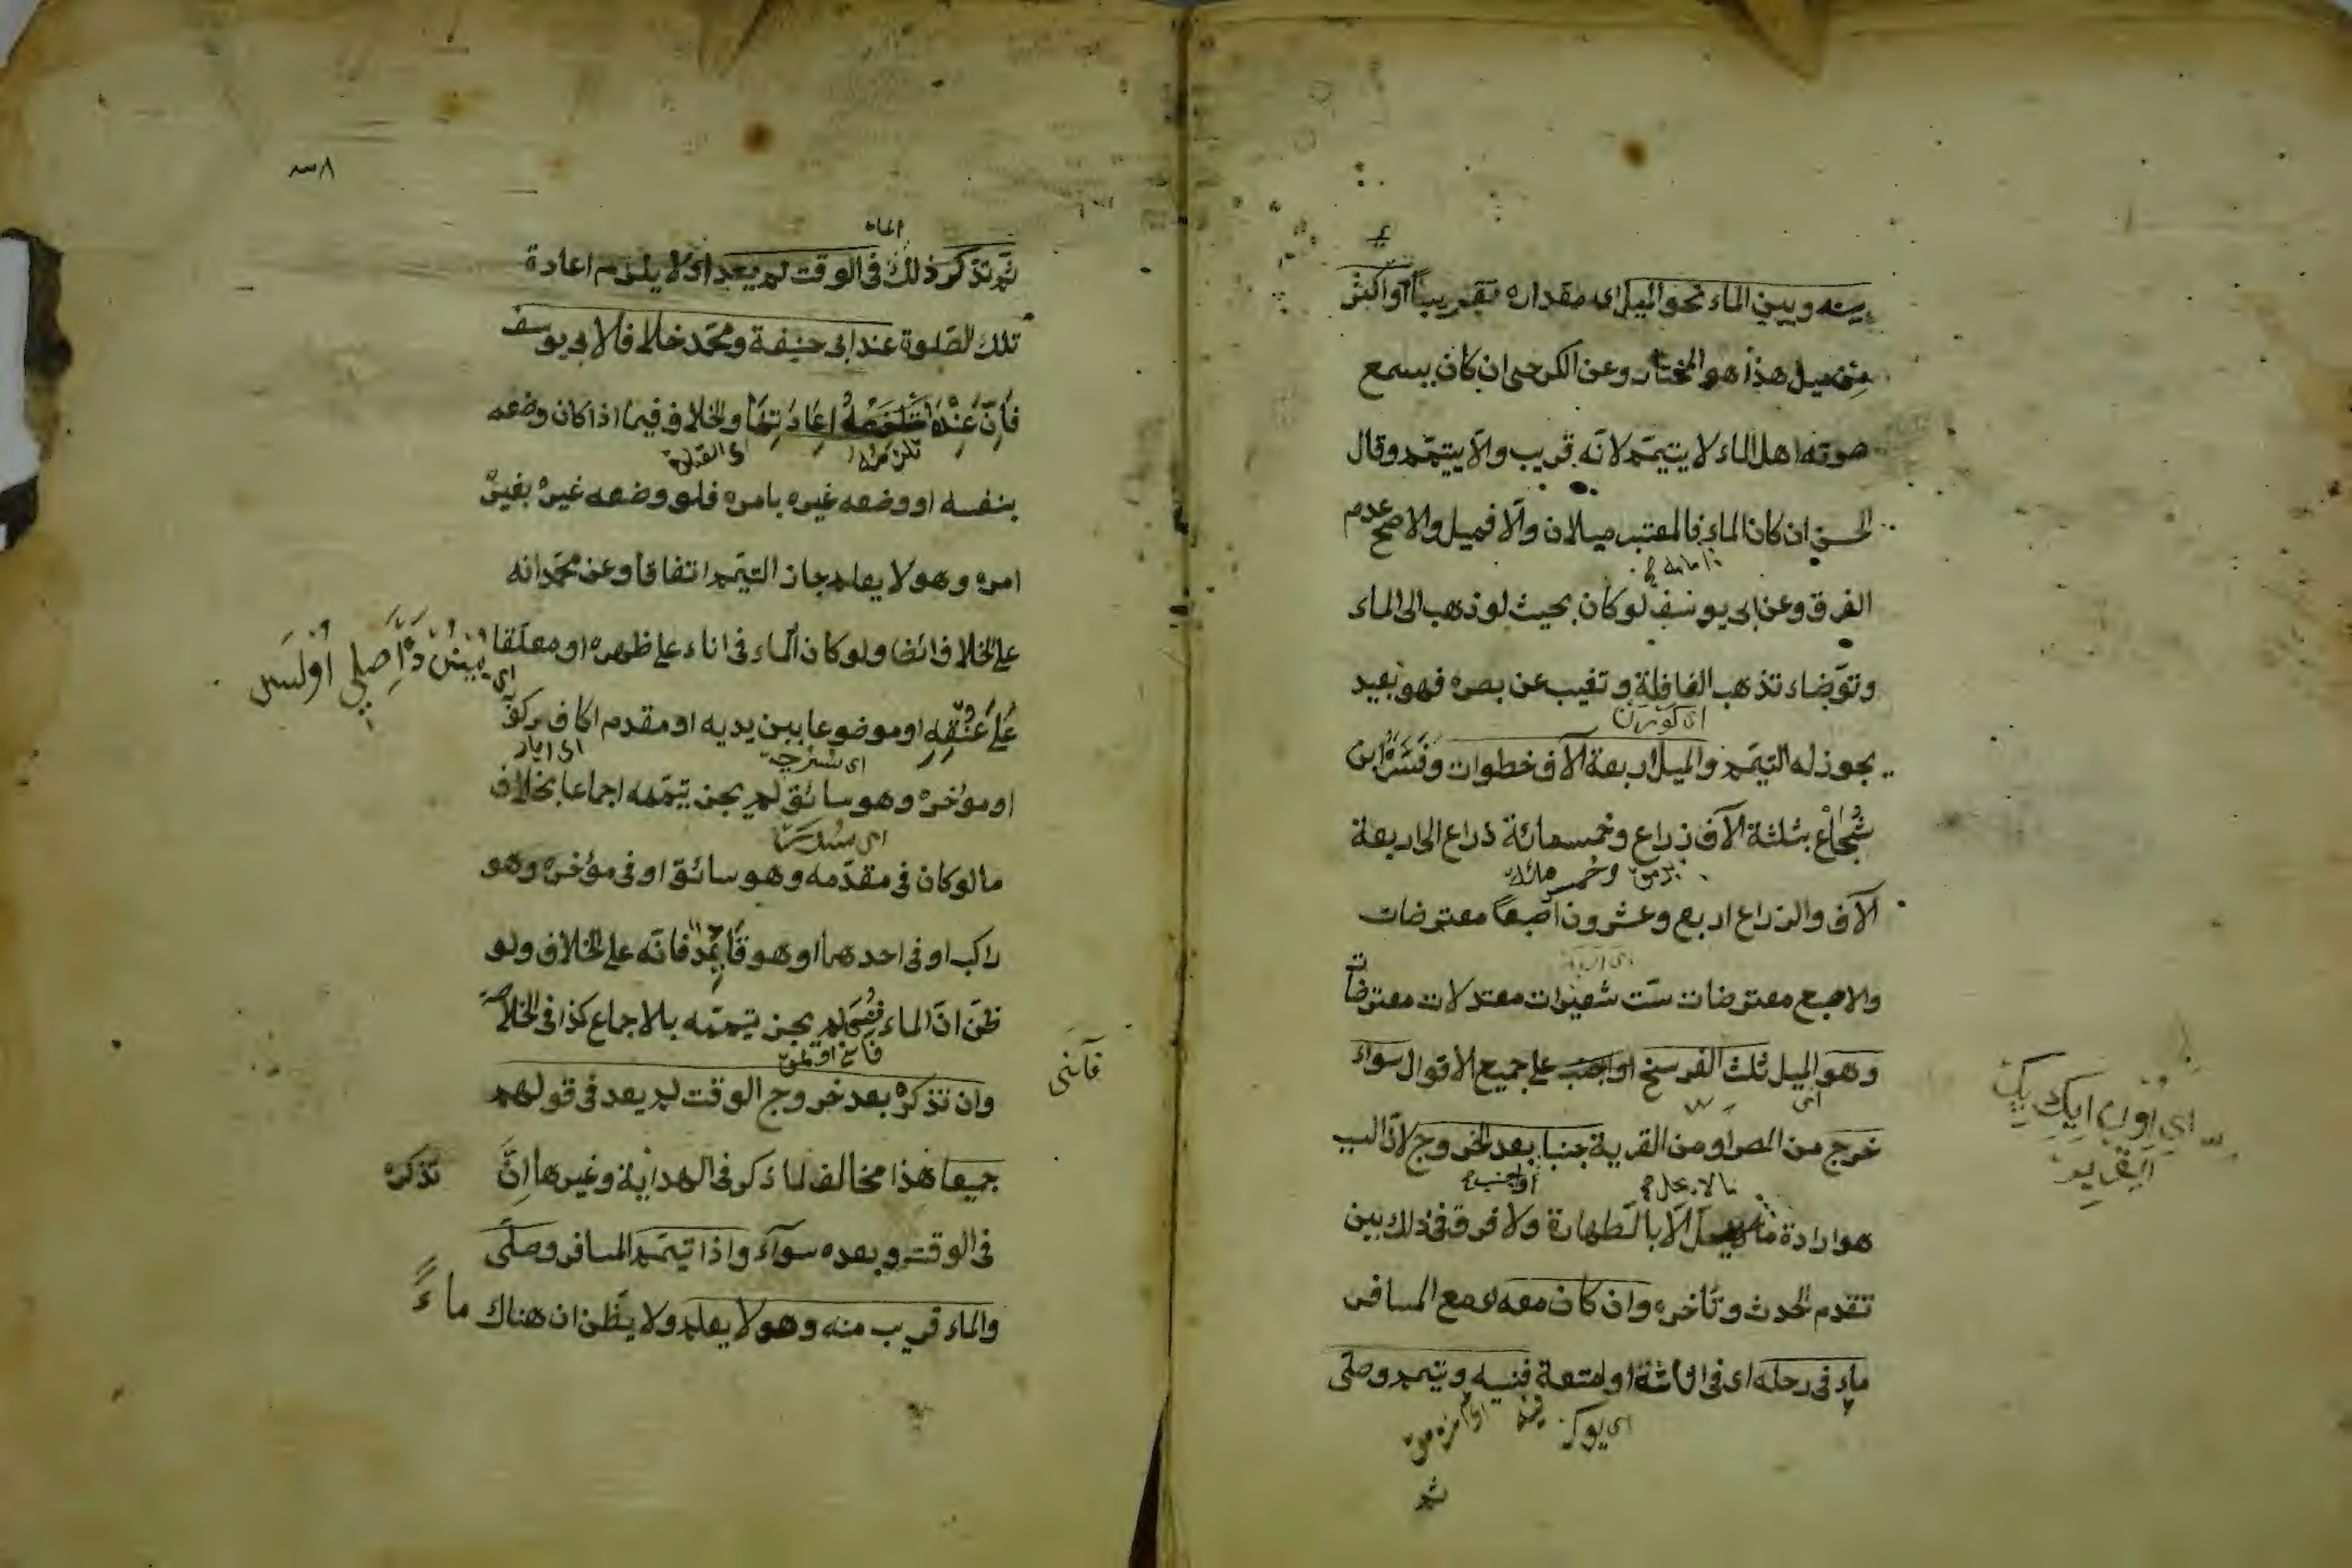 بينه وبين الماء نحو الميل اى مقداره تقريبا او اكثر
من ميل هذا هو المختار وعن الكرخى ان كان يسمع
صوته اهل الماء لا يتيمم لانه قريب والا يتيمم وقال
الحسن ان كان الماء فالمعتبر ميلان والا فميل والاصح عدم
الفرق وعن ابى يوسف لو كان بحيث لو ذهب الى الماء
وتوضاء تذهب القافلة وتغيب عن بصره فهو بعيد
يجوز له التيمم والميل اربعة آلاف خطوات وفسّره ابن
شُجاع بثلثة آلاف ذراع وخمسمائة ذراع الى اربعة
آلاف والذراع اربع وعشرون اصبعا معترضات
والاصبع معترضات ست شعيرات معتدلات معترضات
وهو الميل ثلث الفرسخ او اجنب على جميع الاقوال سواء
خرج من المصر او من القرية جنبا بعد الخروج لان السبب
هو ارادة ما لا يحل الا بالطهارة ولا فرق فى ذلك بين
تقدم الحدث وتأخره وان كان معه اى مع المسافر
ماء فى رحله اى فى اثاثه او امتعة فنسيه وتيمم وصلى
ثم
٨
الماء
ثم تذكر ذلك فى الوقت لم يعد اى لا يلزم اعادة
تلك الصلوة عند ابى حنيفة ومحمد خلافا لابى يوسف
فانّ عنده تلزمه اعادتها والخلاف فيما اذا كان وضعه
تلزمه اى الصلوة
بنفسه او وضعه غيره بامره فلو وضعه غيره بغير
امره وهو لا يعلم جاز التيمم اتفاقا وعن محمد انه
على الخلاف ائضا ولو كان الماء فى اناء على ظهره او معلقا
على عنقه او موضوعا بين يديه او مقدم اكاف مركوبه
او مؤخره وهو سائق لم يجز تيممه اجماعا بخلاف
ما لو كان فى مقدّمه وهو سائق او فى مؤخره وهو
راكب او فى احدهما وهو قائد فانّه على الخلاف ولو
ظنّ انّ الماء فنى لم يجز تيممه بالاجماع كذا فى الخلاصة
وان تذكره بعد خروج الوقت لم يعد فى قولهم
جميعا هذا مخالف لما ذكر فى الهداية وغيرها انّ تذكره
فى الوقت وبعده سوآء واذا تيمم المسافر وصلّى
والماء قريب منه وهو لا يعلم ولا يظن ان هناك ماءً